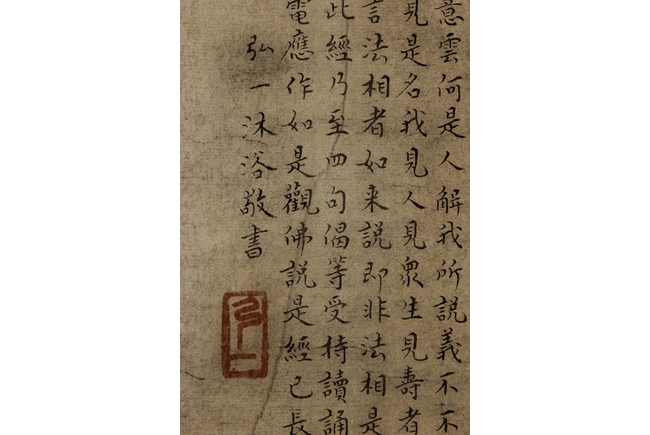 意雲何是人解我所說義不不
見是名我見人見衆生見壽者
言法相者如来說即非法相是
此經乃至四句偈等受持讀誦
電應作如是觀佛說是經已長
弘一沐浴敬書
弘一